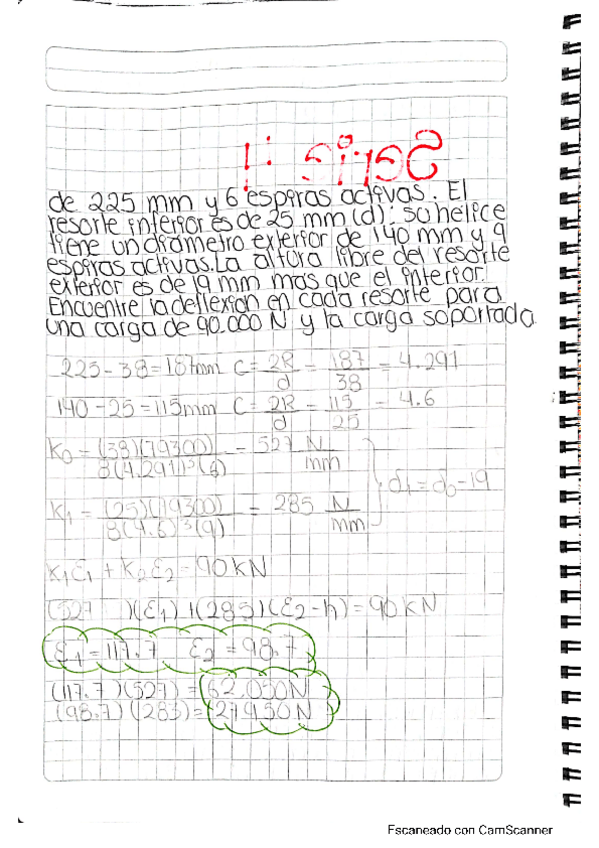 Serie 1
de 225 mm y 6 espiras activas. El
resorte inferior es de 25 mm (d): su helice
tiene un diametro exterior de 140 mm y 9
espiras activas. La altura libre del resorte
exterior es de 19 mm mas que el interior.
Encuentre la deflexion en cada resorte para
una carga de 90.000 N y la carga soportada
225 - 38 = 187mm C = 2R/d = 187/38 = 4.291
140 - 25 = 115mm C = 2R/d = 115/25 = 4.6
K0 = (38)(79300)/8(4.291)³(6) = 527 N/mm
K1 = (25)(79300)/8(4.6)³(9) = 285 N/mm } d1 = d0 - 19
K1Ɛ1 + K2Ɛ2 = 90 KN
(527 )(Ɛ1) + (285)(Ɛ2 - h) = 90 KN
Ɛ1 = 117.7 Ɛ2 = 98.7
(117.7)(527) = 62.050N
(98.7)(283) = 27950N
Escaneado con CamScanner